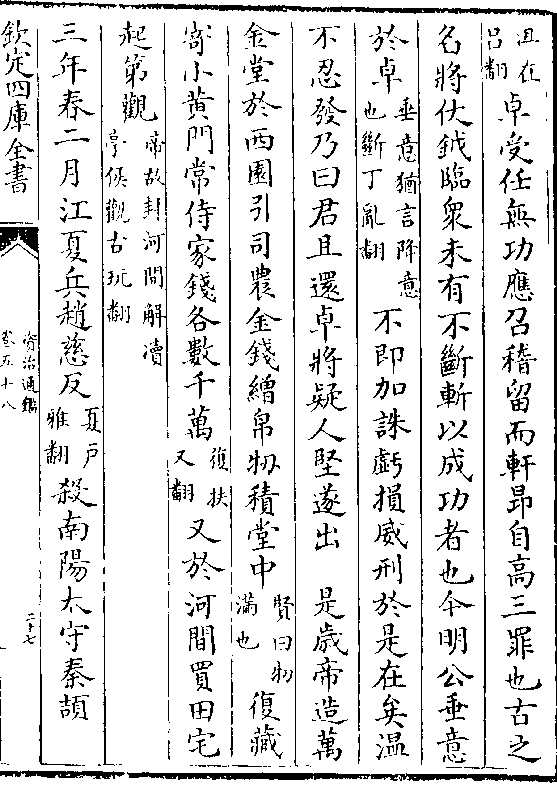 且在呂翻卓受任無功應召稽留而軒昂自高三罪也古之
名將仗鉞臨衆未有不斷斬以成功者也今明公垂意
於卓垂意猶言降意也斷丁亂翻不即加誅虧損威刑於是在矣温
不忍發乃曰君且還卓將疑人堅遂出　是歳帝造萬
金堂於西園引司農金錢繒帛牣積堂中賢曰牣滿也復藏
寄小黄門常侍家錢各數千萬復扶又翻又於河間買田宅
起第觀帝故封河間解瀆亭侯觀古玩翻
三年春二月江夏兵趙慈反夏戸雅翻殺南陽太守秦頡
欽定四庫全書
資治通鑑
卷五十八
二十七